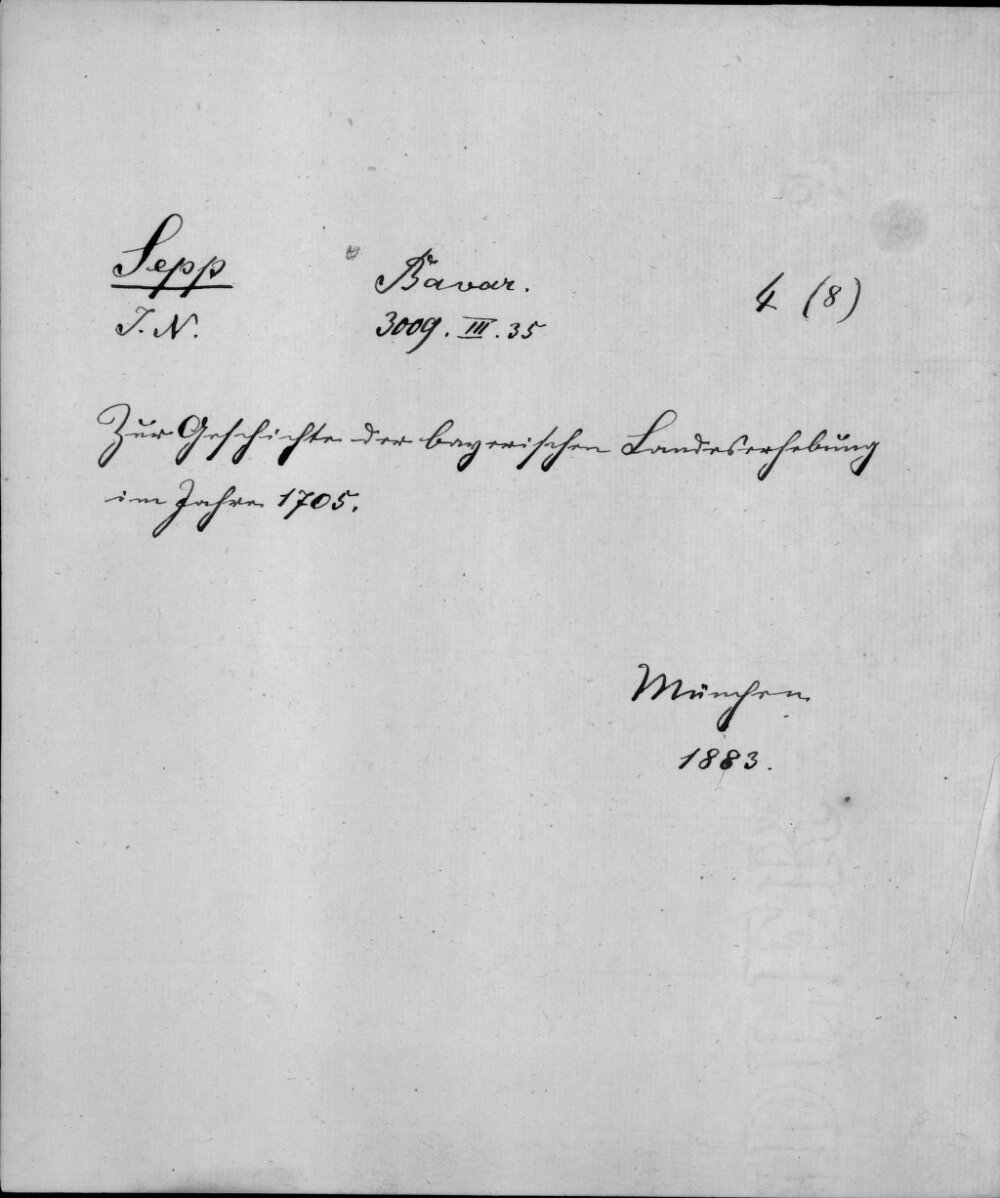 Sepp Bavar. 4 (8)
J. N. 3009. III. 35
Zur Geschichte der bayerischen Landeserhebung
im Jahre 1705.
München
1883.